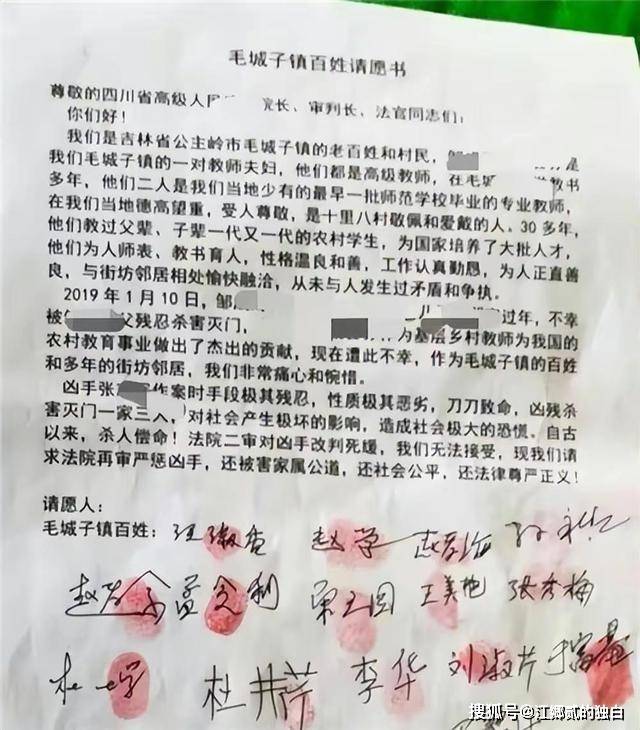 毛城子镇百姓请愿书
尊敬的四川省高级人民 院长、审判长、法官同志们:
你们好!
我们是吉林省公主岭市毛城子镇的老百姓和村民, 是
我们毛城子镇的一对教师夫妇,他们都是高级教师,在毛城 教书
多年,他们二人是我们当地少有的最早一批师范学校毕业的专业教师,
在我们当地德高望重,受人尊敬,是十里八村敬佩和爱戴的人。30多年,
他们教过父辈、子辈一代又一代的农村学生,为国家培养了大批人才,
他们为人师表、教书育人,性格温良和善,工作认真勤恳,为人正直善
良,与街坊邻居相处愉快融洽,从未与人发生过矛盾和争执。
2019年1月10日,邹 过年,不幸
被 父残忍杀害灭门, 作为基层乡村教师为我国的
农村教育事业做出了杰出的贡献,现在遭此不幸,作为毛城子镇的百姓
和多年的街坊邻居,我们非常痛心和惋惜。
凶手张 作案时手段极其残忍,性质极其恶劣,刀刀致命,凶残杀
害灭门一家三人,对社会产生极坏的影响,造成社会极大的恐慌。自古
以来,杀人偿命!法院二审对凶手改判死缓,我们无法接受,现我们请
求法院再审严惩凶手,还被害家属公道,还社会公平,还法律尊严正义!
请愿人:
毛城子镇百姓:汪淑香 赵学
孟文利 王美艳 张秀梅
杜井芹 李华 刘淑芹
搜狐号@江郷贰的独白